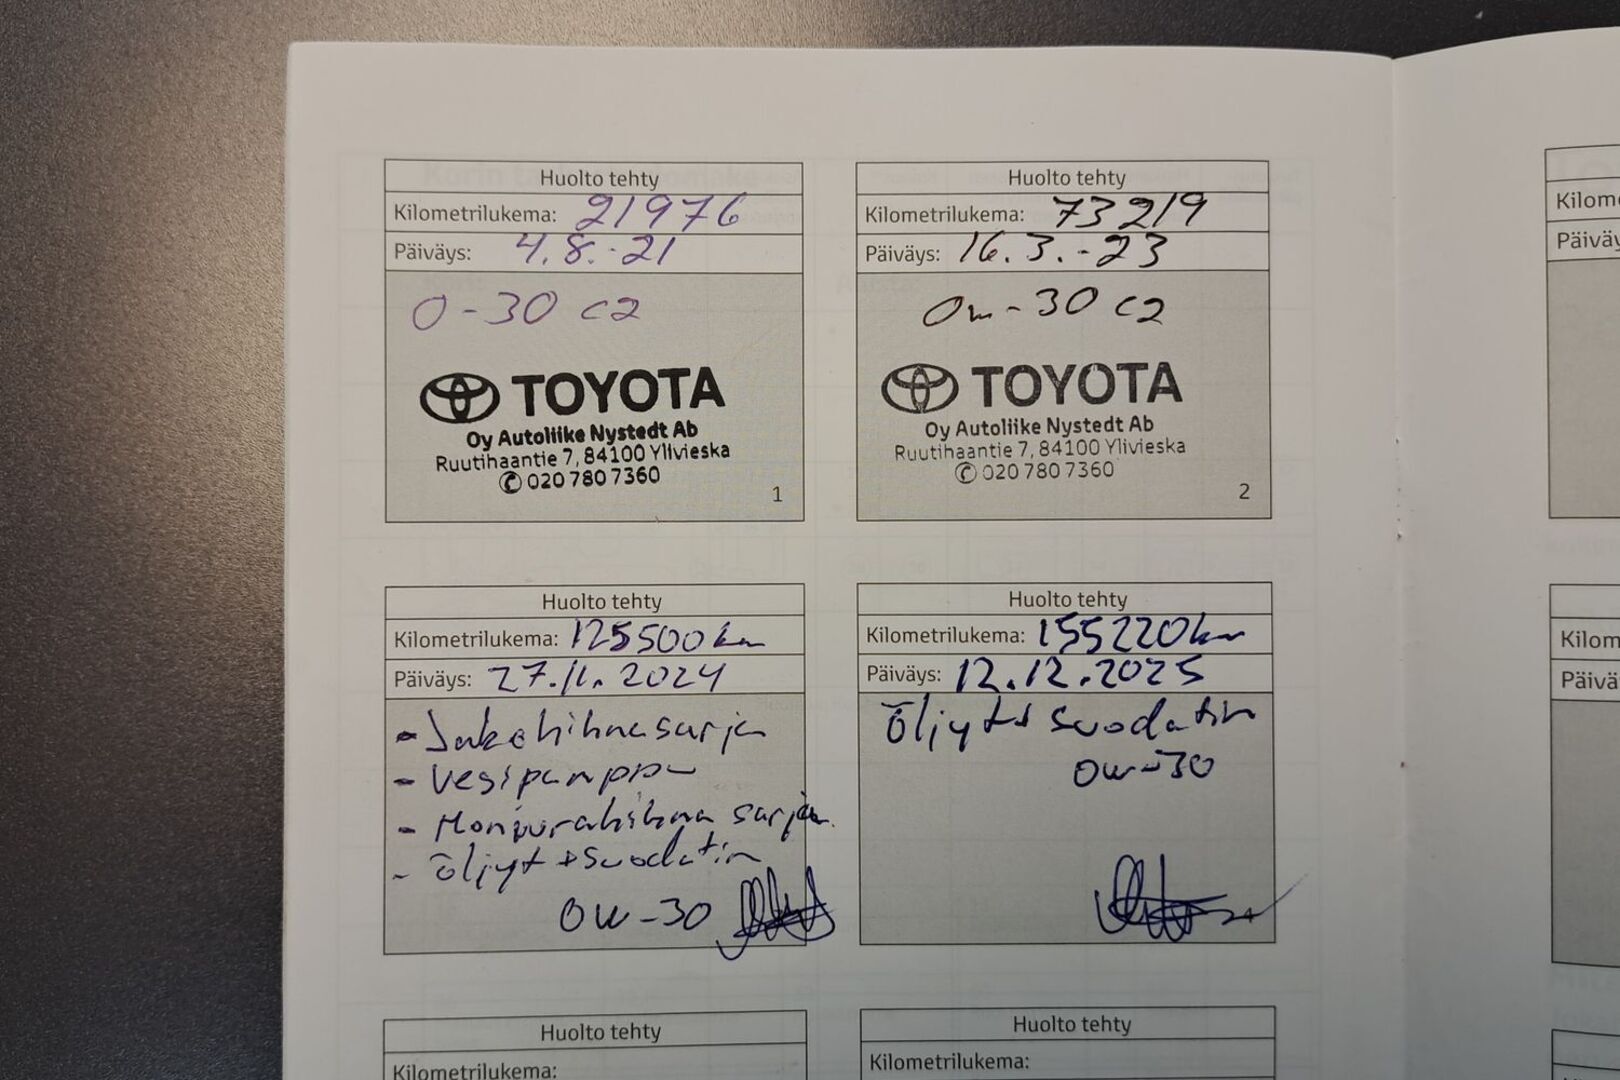 Huolto tehty
Kilometrilukema: 21976
Päiväys: 4.8.-21
0-30 C2
TOYOTA
Oy Autoliike Nystedt Ab
Ruutihaantie 7, 84100 Ylivieska
✆ 020 780 7360
1
Huolto tehty
Kilometrilukema: 73219
Päiväys: 16.3.-23
0w-30 C2
TOYOTA
Oy Autoliike Nystedt Ab
Ruutihaantie 7, 84100 Ylivieska
✆ 020 780 7360
2
Huolto tehty
Kilometrilukema: 125500km
Päiväys: 27.11.2024
- Jakohihnasarja
- Vesipumppu
- Moniurahihna sarja.
- Öljyt + suodatin
0W-30
Huolto tehty
Kilometrilukema: 155220km
Päiväys: 12.12.2025
Öljyt+ suodatin
0W-30
4
Huolto tehty
Kilometrilukema:
Huolto tehty
Kilometrilukema:
Kilom
Päiväy
Kilom
Päivä